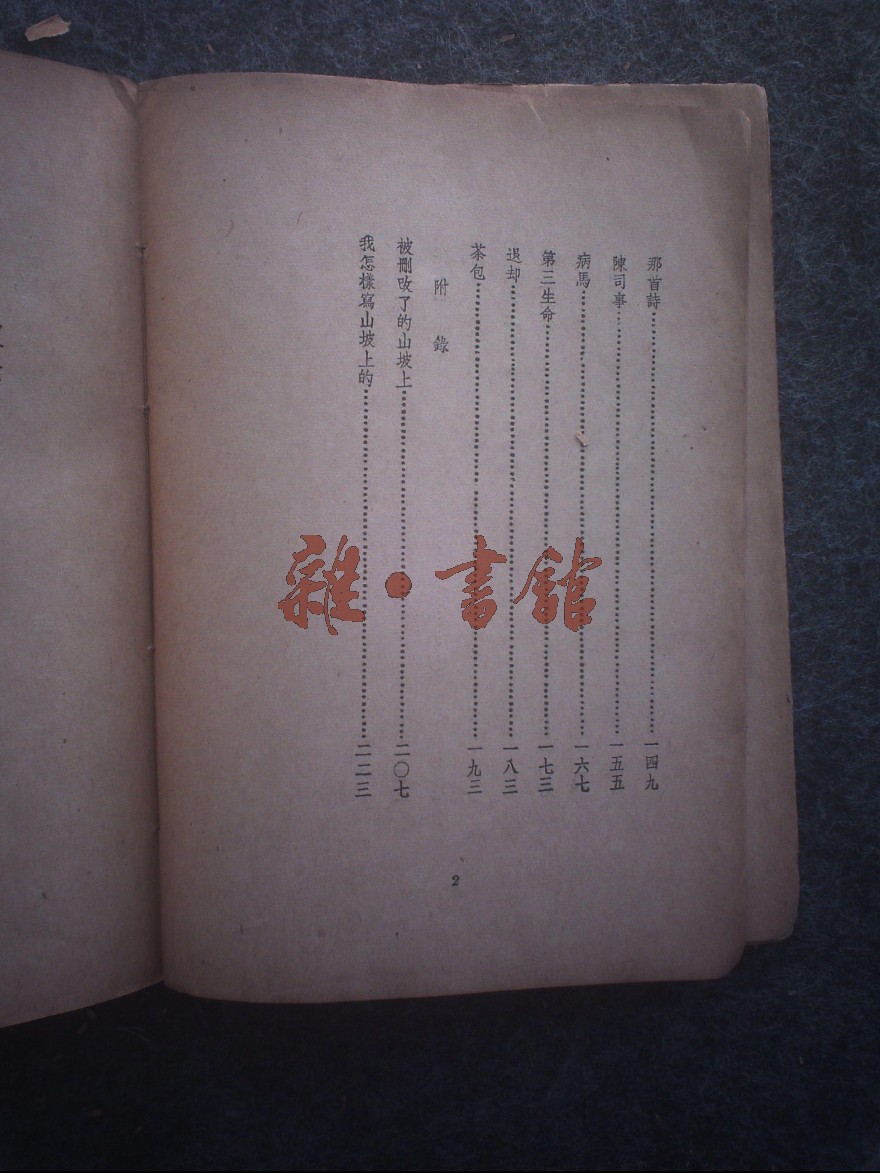 那首詩……一四九
陳司事……一五五
病馬……一六七
第三生命……一七三
退却……一八三
茶包……一九三
附錄
被刪改了的山坡上……二〇七
我怎樣寫山坡上的……二二三
2
雜·書館